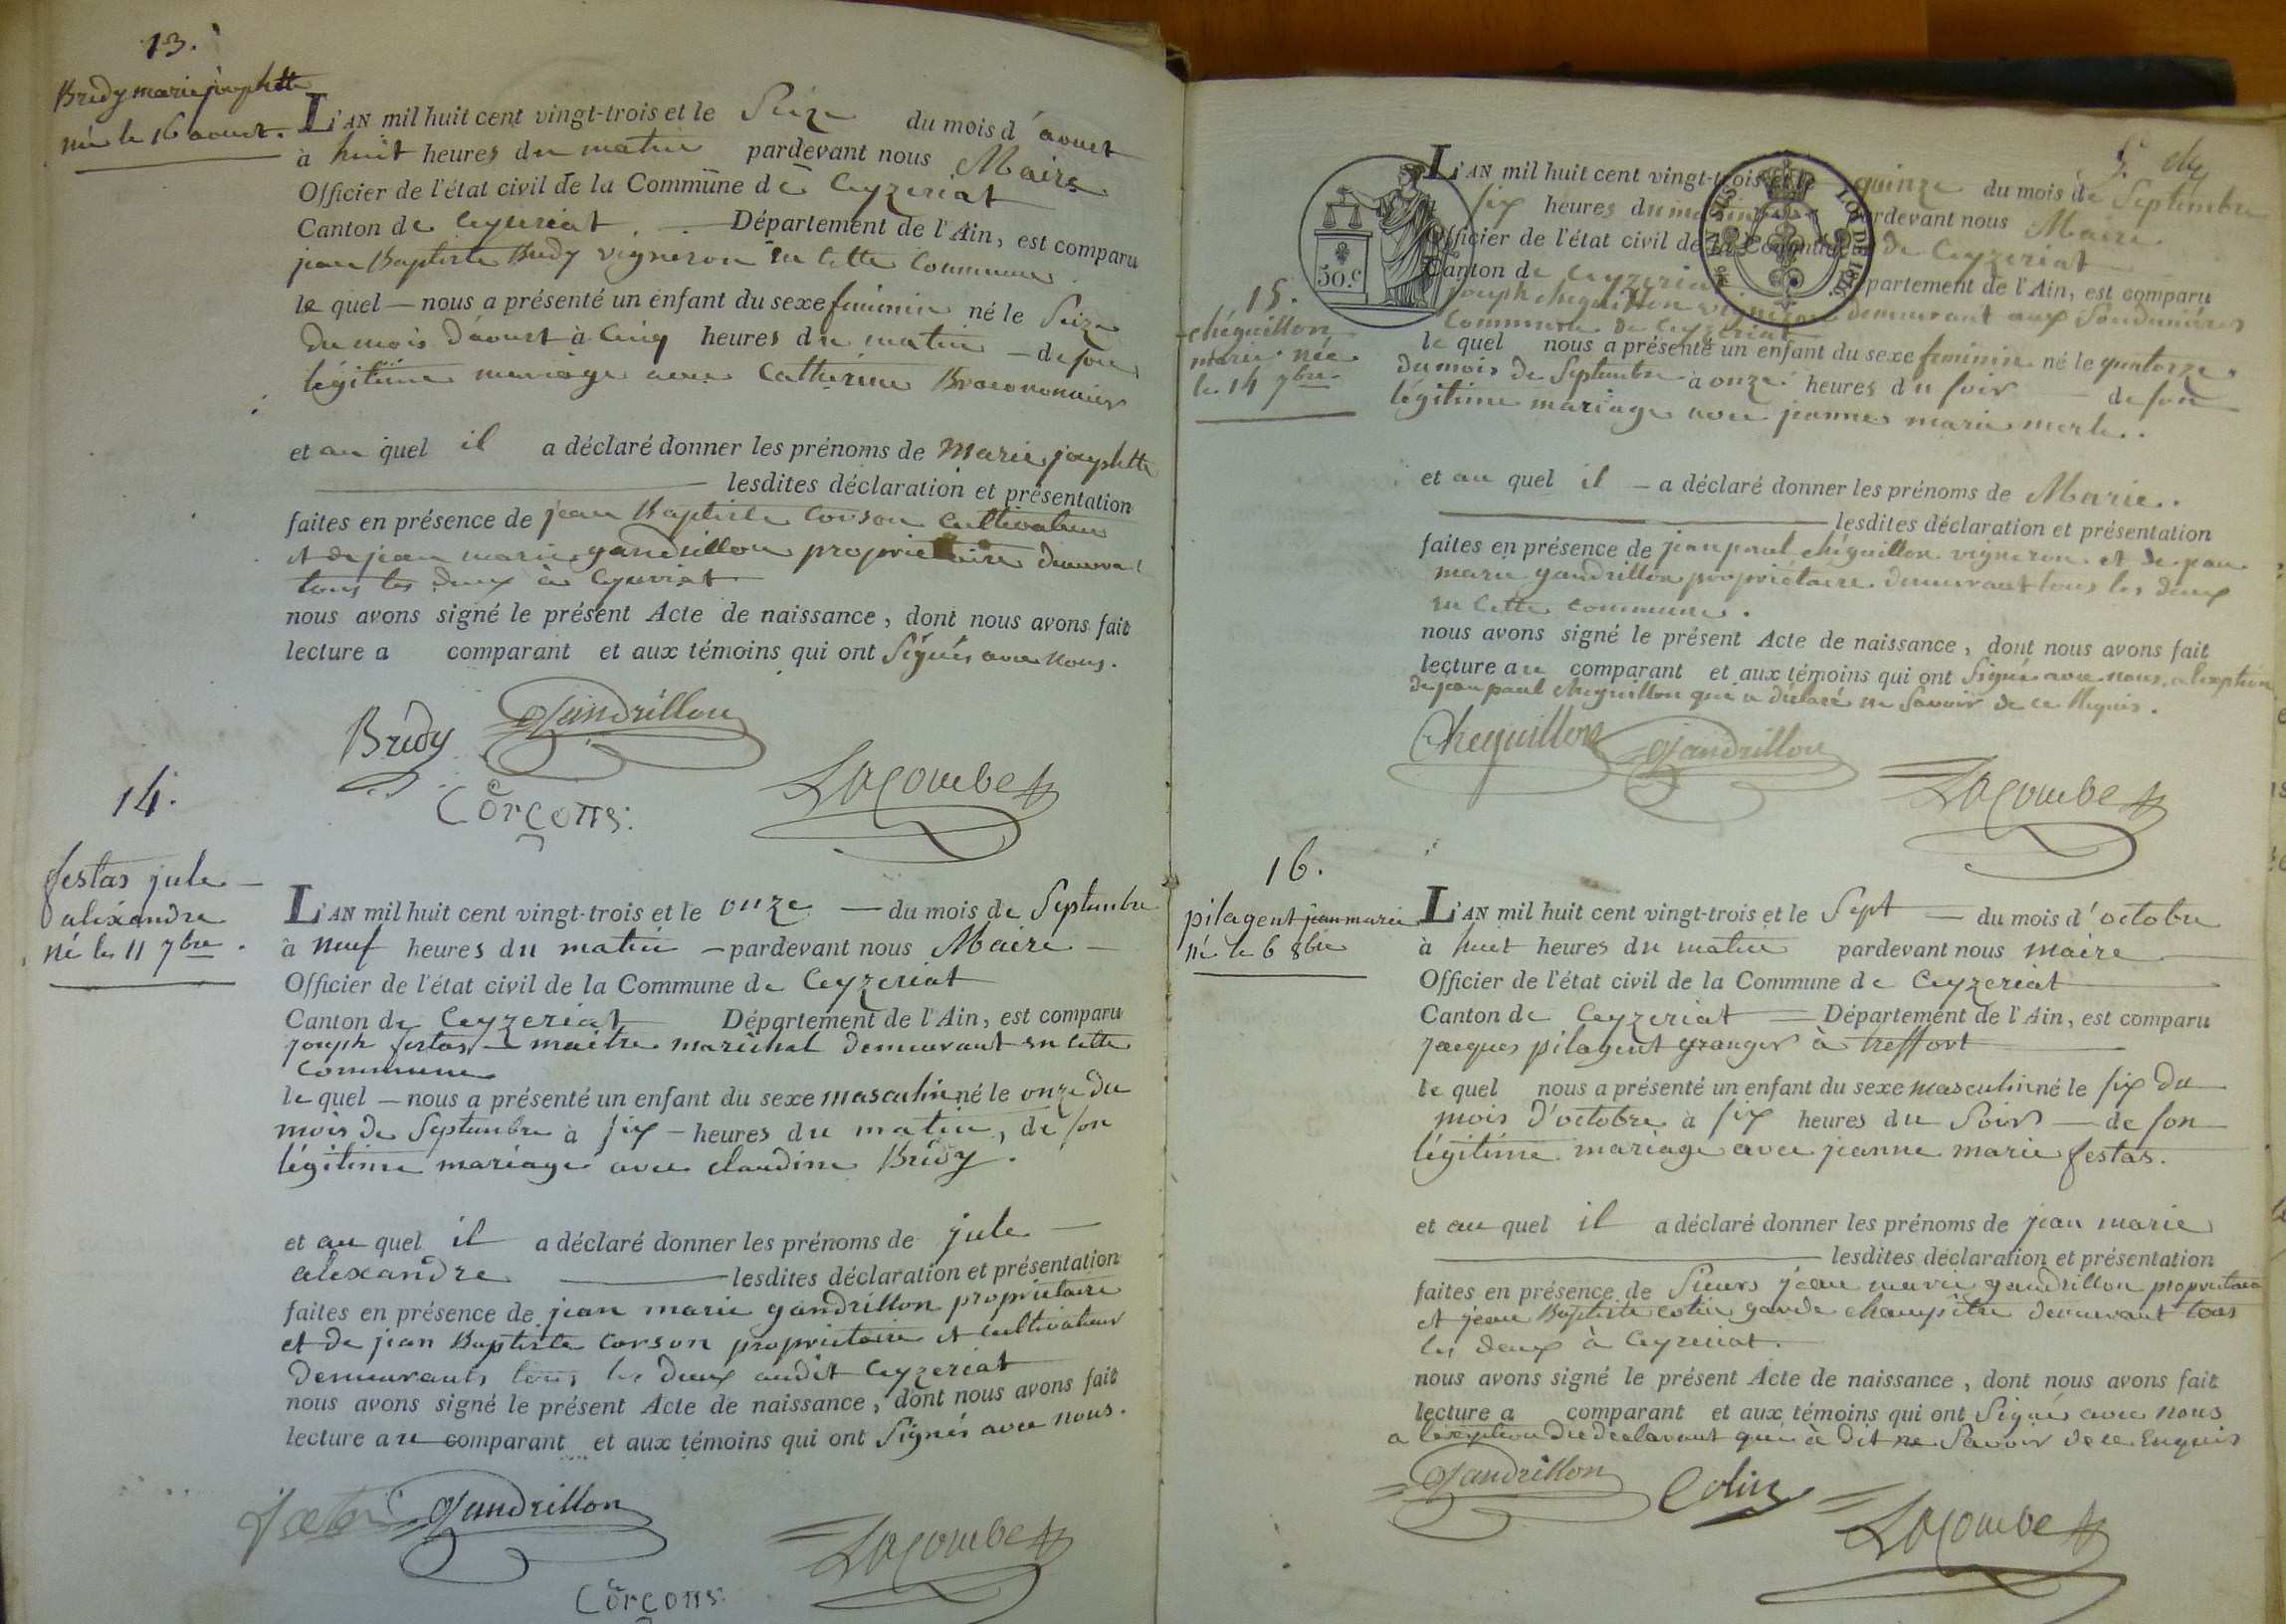 13.
Bridy marie josephette
née le 16 aoust.
L'AN mil huit cent vingt-trois et le Seize du mois d'aoust
à huit heures du matin pardevant nous Maire
Officier de l'état civil de la Commune de Ceyzeriat
Canton de Ceyzeriat Département de l'Ain, est comparu
jean Baptiste Bridy vigneron en cette Commune
le quel — nous a présenté un enfant du sexe feminin né le Seize
du mois d'aoust à Cinq heures du matin — de son
légitime mariage avec Catherine
et au quel il a déclaré donner les prénoms de Marie josephette
lesdites déclaration et présentation
faites en présence de jean Baptiste Corson Cultivateur
et de jean marie gandrillon proprietaire demeurant
tous les deux à Ceyzeriat
nous avons signé le présent Acte de naissance, dont nous avons fait
lecture a comparant et aux témoins qui ont Signés avec nous.
Bridy Gandrillon
Corçons. Lacombe
14.
festas jule
alexandre
né le 11 7bre.
L'AN mil huit cent vingt-trois et le onze — du mois de Septembre
à neuf heures du matin — pardevant nous Maire —
Officier de l'état civil de la Commune de Ceyzeriat
Canton de Ceyzeriat Département de l'Ain, est comparu
joseph festas maitre maréchal demeurant en cette
Commune
le quel — nous a présenté un enfant du sexe masculin né le onze du
mois de Septembre à six — heures du matin, de son
légitime mariage avec claudine Bridy.
et au quel il a déclaré donner les prénoms de jule —
alexandre lesdites déclaration et présentation
faites en présence de jean marie gandrillon propriétaire
et de jean Baptiste Corson propriétaire et cultivateur
demeurants tous les deux audit Ceyzeriat
nous avons signé le présent Acte de naissance, dont nous avons fait
lecture au comparant et aux témoins qui ont Signés avec nous.
Gandrillon Lacombe
Corçons.
50.c
LOI DE 1816.
15.
chéguillon
marie née
le 14 7bre
L'AN mil huit cent vingt-trois et le quinze du mois de Septembre
six heures du matin pardevant nous Maire
Officier de l'état civil de la Commune de Ceyzeriat
Canton de Ceyzeriat Département de l'Ain, est comparu
joseph cheguillon vigneron demeurant aux
Commune de Ceyzeriat
le quel nous a présenté un enfant du sexe feminin né le quatorze
du mois de Septembre à onze heures du soir — de son
légitime mariage avec jeanne marie merle.
et au quel il — a déclaré donner les prénoms de Marie.
lesdites déclaration et présentation
faites en présence de jean paul chéguillon vigneron et de jean
marie gandrillon propriétaire demeurant tous les deux
en cette commune.
nous avons signé le présent Acte de naissance, dont nous avons fait
lecture au comparant et aux témoins qui ont Signé avec nous a lexption
de jean paul cheguillon qui a déclaré ne Savoir de ce
Cheguillon Gandrillon
Lacombe
16.
pilagent jean marie
né le 6 8bre
L'AN mil huit cent vingt-trois et le Sept — du mois d'octobre
à huit heures du matin pardevant nous maire
Officier de l'état civil de la Commune de Ceyzeriat
Canton de Ceyzeriat Département de l'Ain, est comparu
jacques pilagent granger à treffort
le quel nous a présenté un enfant du sexe masculin né le six du
mois d'octobre à six heures du Soir — de son
légitime mariage avec jeanne marie festas.
et au quel il a déclaré donner les prénoms de jean marie
lesdites déclaration et présentation
faites en présence de Sieurs jean marie gandrillon propriétaire
et jean Baptiste colin garde champêtre demeurant tous
les deux à Ceyzeriat.
nous avons signé le présent Acte de naissance, dont nous avons fait
lecture a comparant et aux témoins qui ont Signés avec nous
a lexception du declarant qui à dit ne Savoir de ce Enquis
Gandrillon Colin
Lacombe